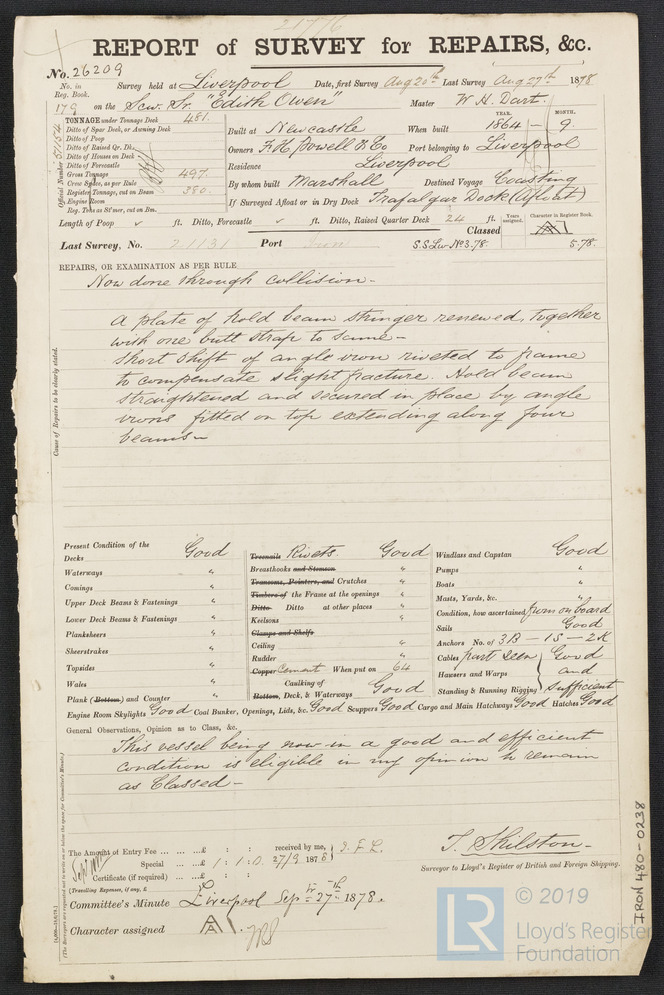 21776
REPORT of SURVEY for REPAIRS, &c.
No. 26209
No. in Reg. Book.
179
Survey held at Liverpool Date, first Survey Aug 20th Last Survey Aug 27th 1878
on the Scw. Sr. "Edith Owen" Master W. H. Dart.
TONNAGE under Tonnage Deck 481.
Ditto of Spar Deck, or Awning Deck
Ditto of Poop
Ditto of Raised Qr. Dk.
Ditto of Houses on Deck
Ditto of Forecastle
Gross Tonnage 497.
Crew Space, as per Rule
Register Tonnage, cut on Beam 380.
Engine Room
Reg. Tons as St'mer, cut on Bm.
Official Number
YEAR. MONTH.
Built at Newcastle When built 1864 - 9
Owners F. H. Powell & Co Port belonging to Liverpool
Residence Liverpool
By whom built Marshall Destined Voyage Coasting
If Surveyed Afloat or in Dry Dock Trafalgar Dock (Afloat)
Length of Poop ✓ ft. Ditto, Forecastle ✓ ft. Ditto, Raised Quarter Deck 24 ft.
Years assigned. Character in Register Book.
Classed
Last Survey, No. 21131 Port Iron S.S. Liv. No 3.78. 5.78.
REPAIRS, OR EXAMINATION AS PER RULE
Now done through collision -
A plate of hold beam stringer renewed, together
with one butt strap to same -
Short shift of angle iron riveted to frame
to compensate slight fracture. Hold beam
straightened and secured in place by angle
irons fitted on top extending along four
beams -
Cause of Repairs to be clearly stated.
Present Condition of the
Decks Good
Waterways "
Comings "
Upper Deck Beams & Fastenings "
Lower Deck Beams & Fastenings "
Planksheers "
Sheerstrakes "
Topsides "
Wales "
Plank (Bottom) and Counter "
Treenails Rivets. Good
Breasthooks and Stemson "
Transoms, Pointers, and Crutches "
Timbers of the Frame at the openings "
Ditto Ditto at other places "
Keelsons "
Clamps and Shelfs
Ceiling "
Rudder "
Copper Cement When put on 64
Caulking of
Bottom, Deck, & Waterways Good
Windlass and Capstan Good
Pumps "
Boats "
Masts, Yards, &c. "
Condition, how ascertained from on board
Sails Good
Anchors No. of 3B - 1S - 2K
Cables part seen Good
Hawsers and Warps and
Standing & Running Rigging sufficient
Engine Room Skylights Good Coal Bunker, Openings, Lids, &c. Good Scuppers Good Cargo and Main Hatchways Good Hatches Good
General Observations, Opinion as to Class, &c.
This vessel being now in a good and efficient
condition is eligible in my opinion to remain
as Classed -
The Amount of Entry Fee ... ... ...£ : : received by me, J. F. L.
Special ... ...£ 1 : 1 : 0. 27/9 1878
Certificate (if required) ... ...£ : :
(Travelling Expenses, if any, £
T. Shilston -
Surveyor to Lloyd's Register of British and Foreign Shipping.
Committee's Minute Liverpool Sepr 27th 1878.
Character assigned A
IRON 480-0238
LR
© 2019
Lloyd's Register
Foundation